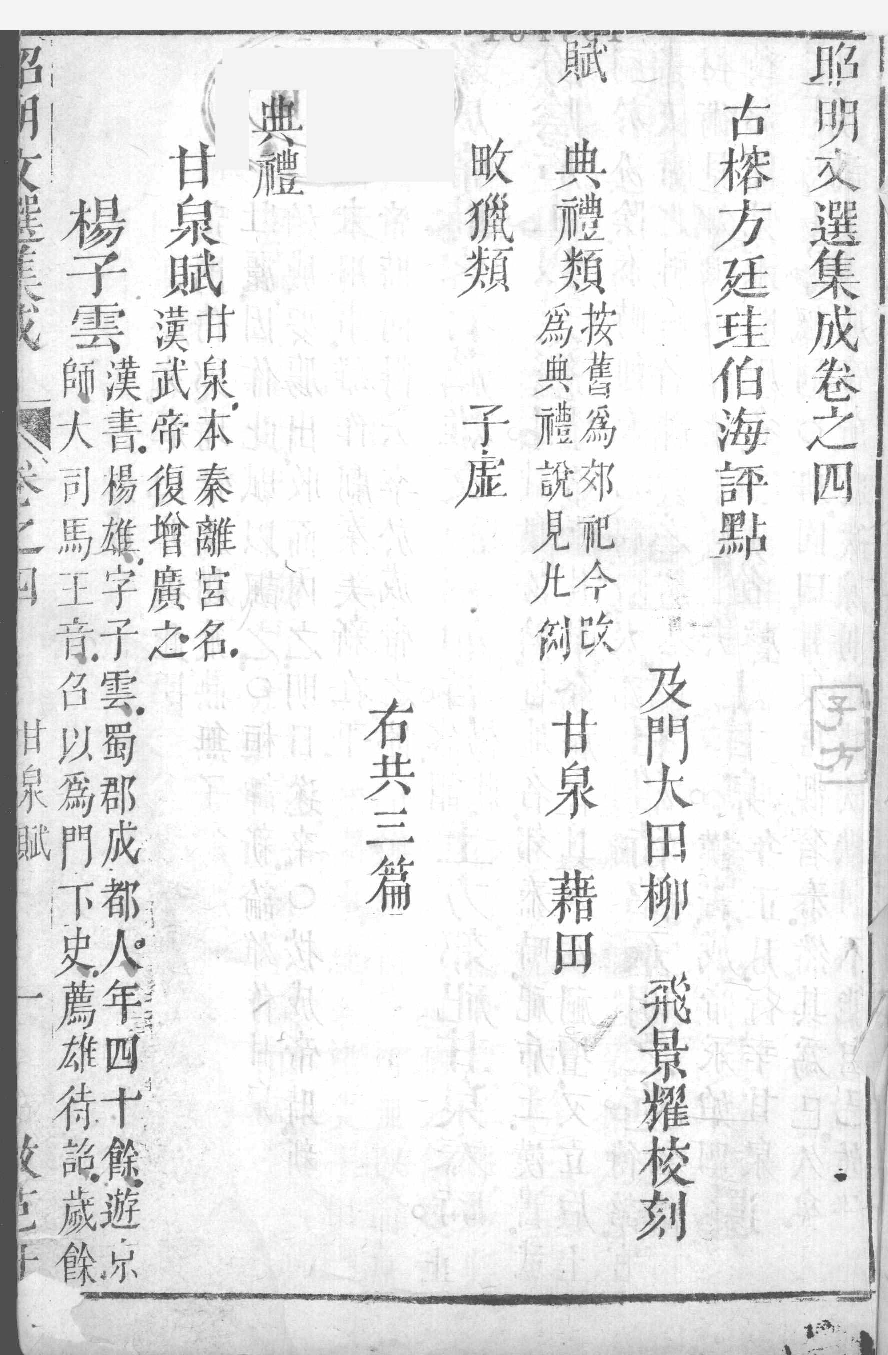 昭明文選集成卷之四
古榕方廷珪伯海評點
及門大田柳　飛景耀校刻
賦
典禮類
按舊爲郊祀今改
爲典禮說見凡例
甘泉　藉田
畋獵類
子虛
右共三篇
典禮
甘泉賦
甘泉本秦離宮名
漢武帝復增廣之
楊子雲
漢書楊雄字子雲蜀郡成都人年四十餘遊京
師大司馬王音召以爲門下史薦雄待詔歲餘
昭明文選集成
卷之四
甘泉賦
一
子方